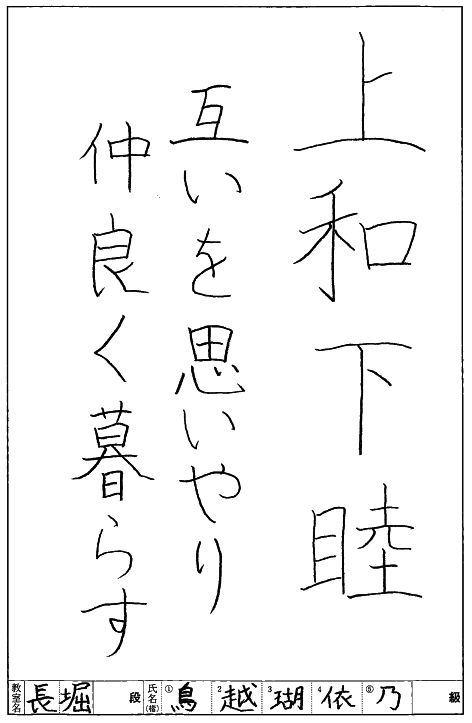 上和下睦
互いを思いやり
仲良く暮らす
教室名 長堀 段 氏名(楷) ①鳥 2越 3瑚 4依 ⑤乃 級